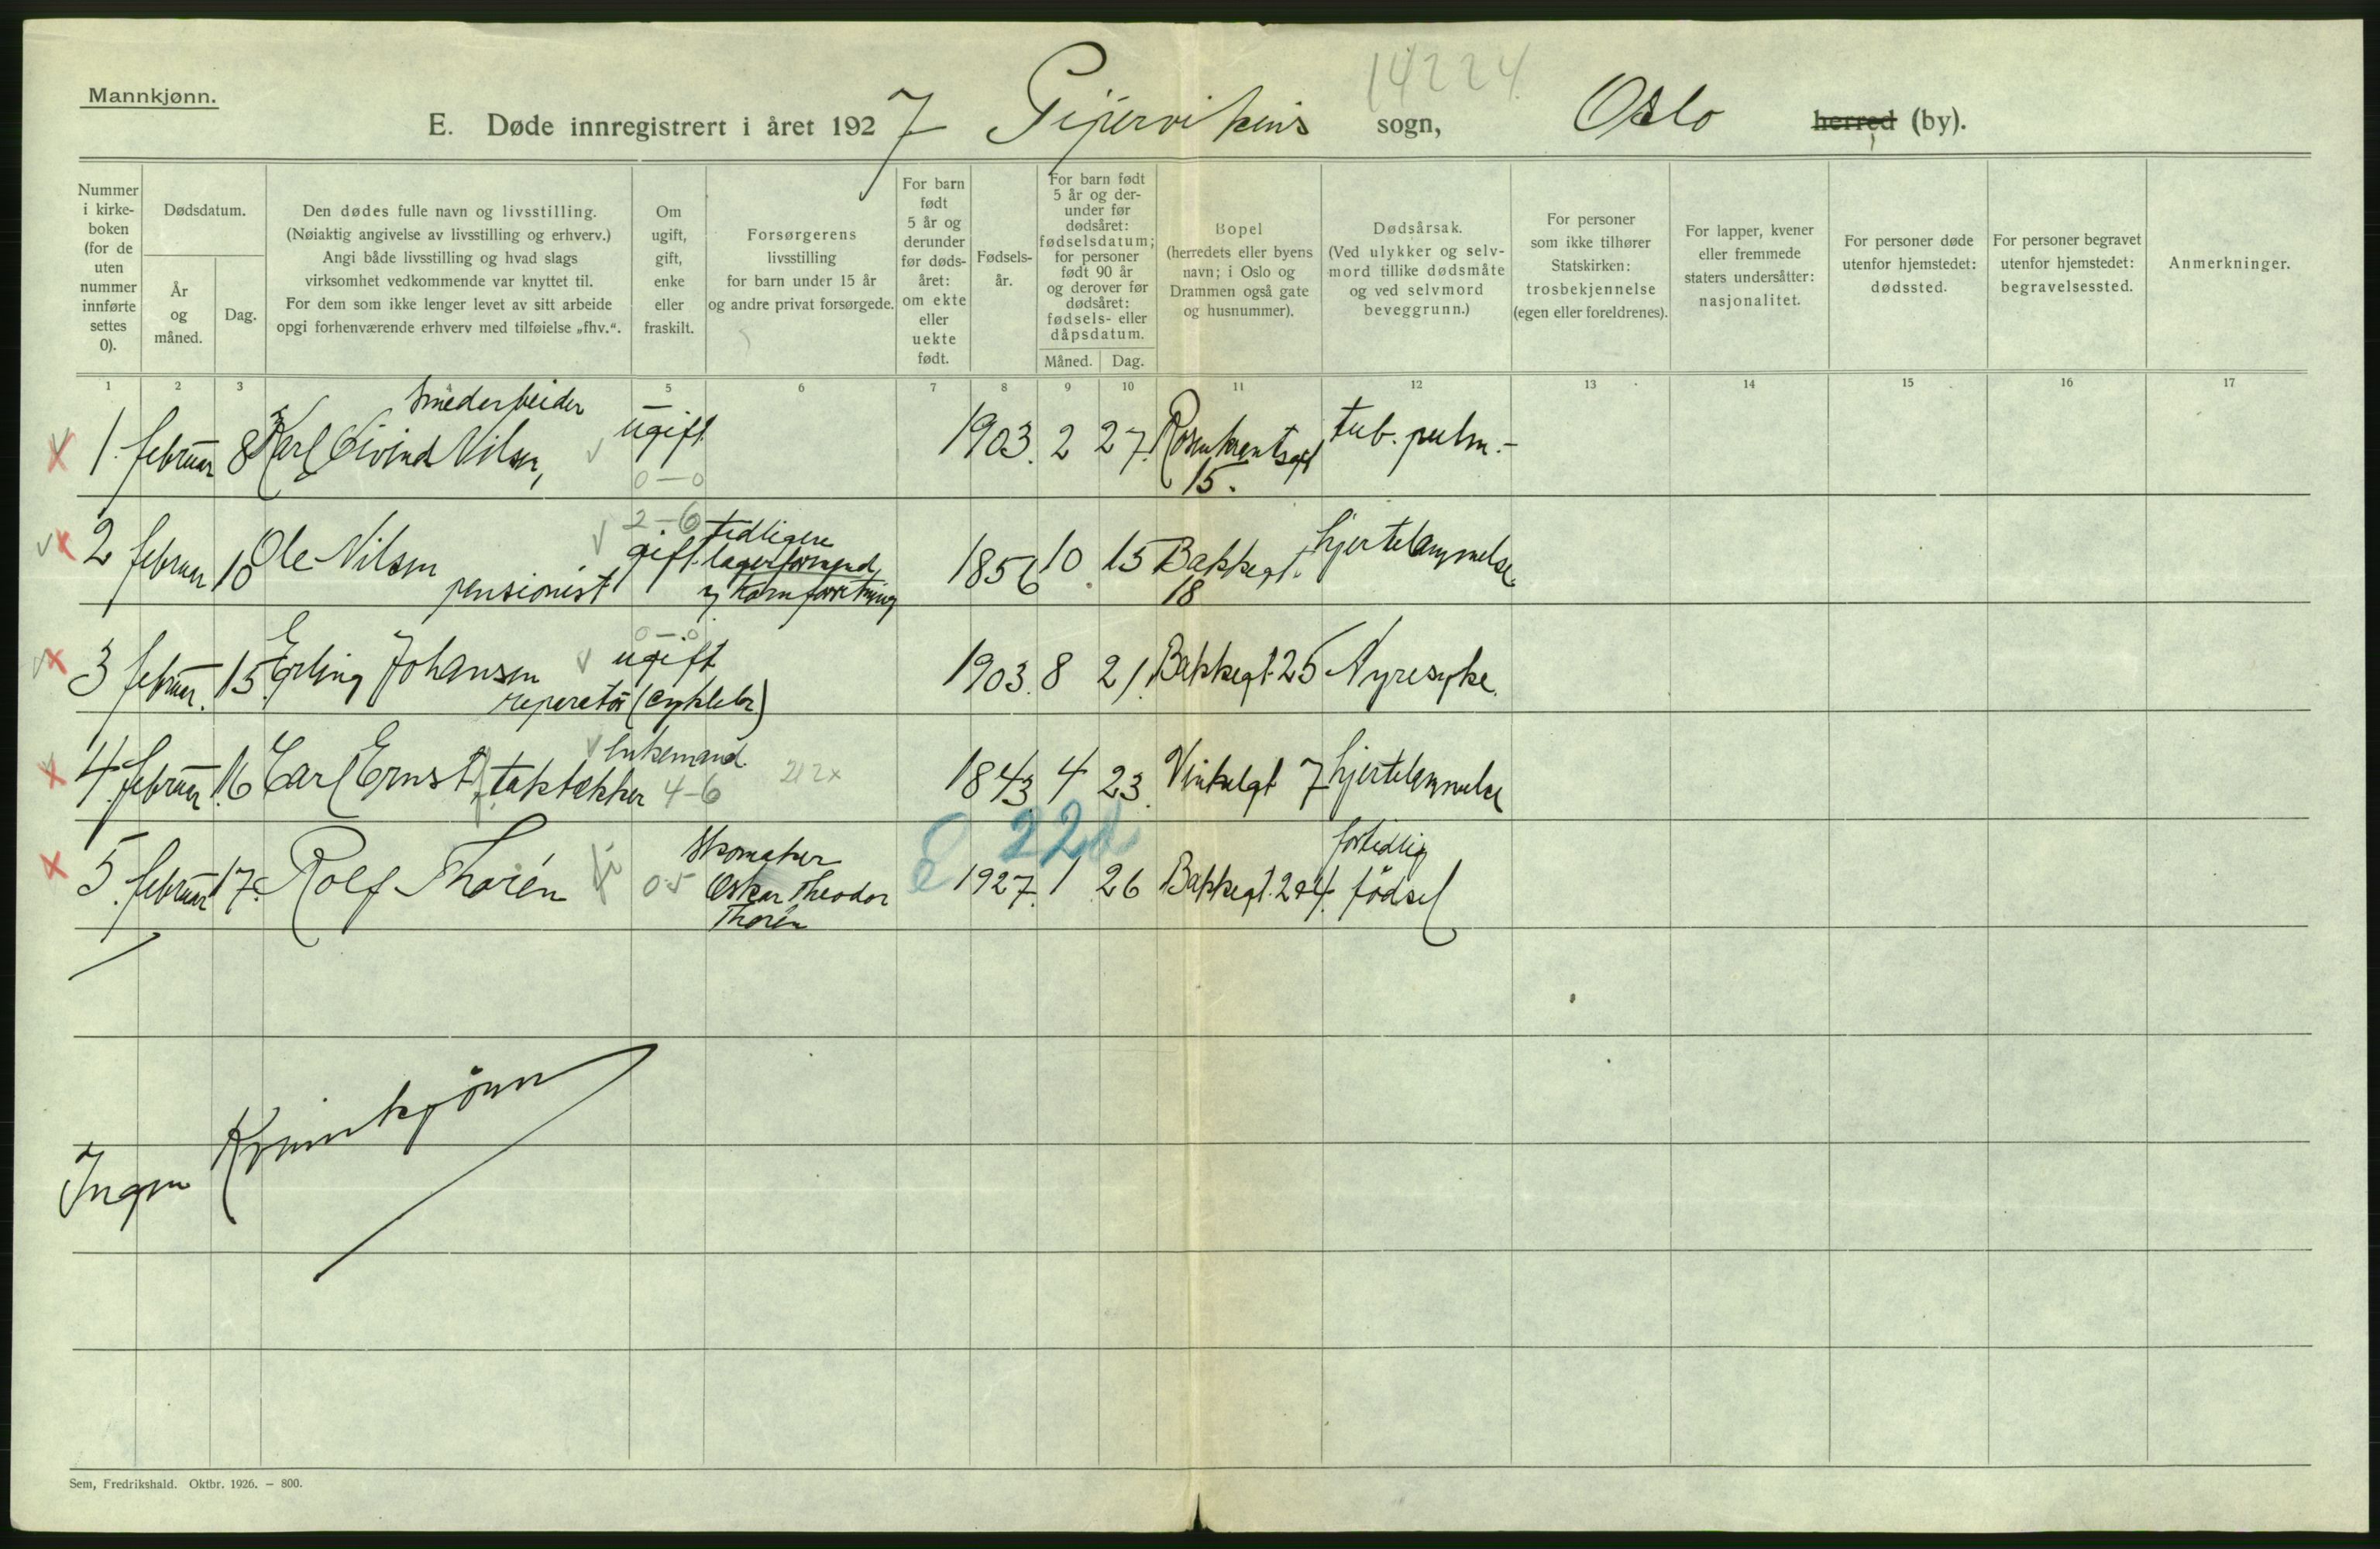 Mannkjønn.
14224
E. Døde innregistrert i året 1927 Pipervikens sogn, Oslo herred (by).
Nummer i kirke-boken (for de uten nummer innførte settes 0).
Dødsdatum.
År og måned.
Dag.
Den dødes fulle navn og livsstilling.
(Nøiaktig angivelse av livsstilling og erhverv.)
Angi både livsstilling og hvad slags
virksomhet vedkommende var knyttet til.
For dem som ikke lenger levet av sitt arbeide
opgi forhenværende erhverv med tilføielse „fhv.“.
Om ugift, gift, enke eller fraskilt.
Forsørgerens
livsstilling
for barn under 15 år
og andre privat forsørgede.
For barn født 5 år og derunder før døds-året: om ekte eller uekte født.
Fødsels-år.
For barn født 5 år og der-under før dødsåret: fødselsdatum; for personer født 90 år og derover før dødsåret: fødsels- eller dåpsdatum.
Måned. Dag.
Bopel
(herredets eller byens
navn; i Oslo og
Drammen også gate
og husnummer).
Dødsårsak.
(Ved ulykker og selv-
mord tillike dødsmåte
og ved selvmord
beveggrunn.)
For personer
som ikke tilhører
Statskirken:
trosbekjennelse
(egen eller foreldrenes).
For lapper, kvener
eller fremmede
staters undersåtter:
nasjonalitet.
For personer døde
utenfor hjemstedet:
dødssted.
For personer begravet
utenfor hjemstedet:
begravelsessted.
Anmerkninger.
1 2 3 4 5 6 7 8 9 10 11 12 13 14 15 16 17
Smedarbeider
1. februar 8 Karl Eivind Nilsen, ugift 1903. 2 27. Rosenkrantzgt tub. pulm.-
0-0 15.
2-6 tidligere
2 februar 10 Ole Nilsen gift lagerformand 1856 10 15 Bakkegt. hjertelammelse.
pensionist i kornforretning 18
0-0
3 februar. 15. Erling Johansen ugift 1903. 8 21. Bakkegt. 25 Nyresyke.
reparatør (cykkler)
Enkemand
4. februar 16 Carl Ernst, taktekker 4-6 212x 1843 4 23. Vinkelgt 7 hjertelammelse
22d
Skomaker fortidlig
5. februar 17. Rolf Thorén 05 Oskar Theodor E 1927. 1 26 Bakkegt. 24. fødsel
Thorén
Ingen Kvinnkjønn
Sem, Fredrikshald. Oktbr. 1926. – 800.